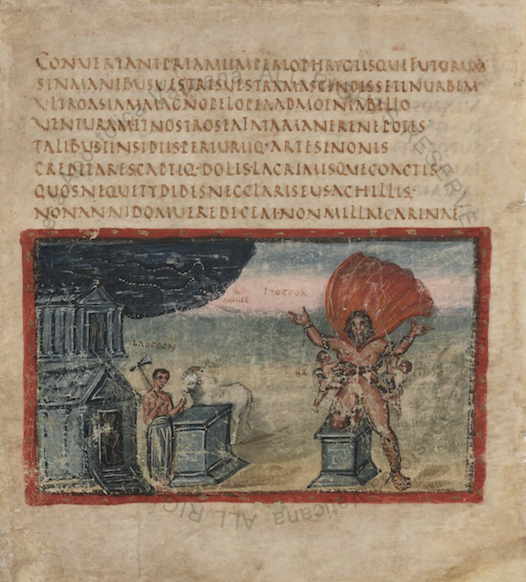 CONVERTANTPRIAMIIMPERIOPHRYGIISQUEFUTURUM
SINMANIBUSUESTRISUESTRAMASCENDISSETINURBEM
ULTROASIAMMAGNOPELOPEAADMOENIABELLO
UENTURAMETNOSTROSEAFATAMANERENEPOTES
TALIBUSINSIDIISPERIURIQ·ARTESINONIS
CREDITARESCAPTIQ·DOLISLACRIMISQUECOACTIS·
QUOSNEQUETYDIDESNECCLARISEUSACHILLIS·
NONANNIDOMUEREDECEM·NONMILLECARINAE
LAOCOON
LAOCOON